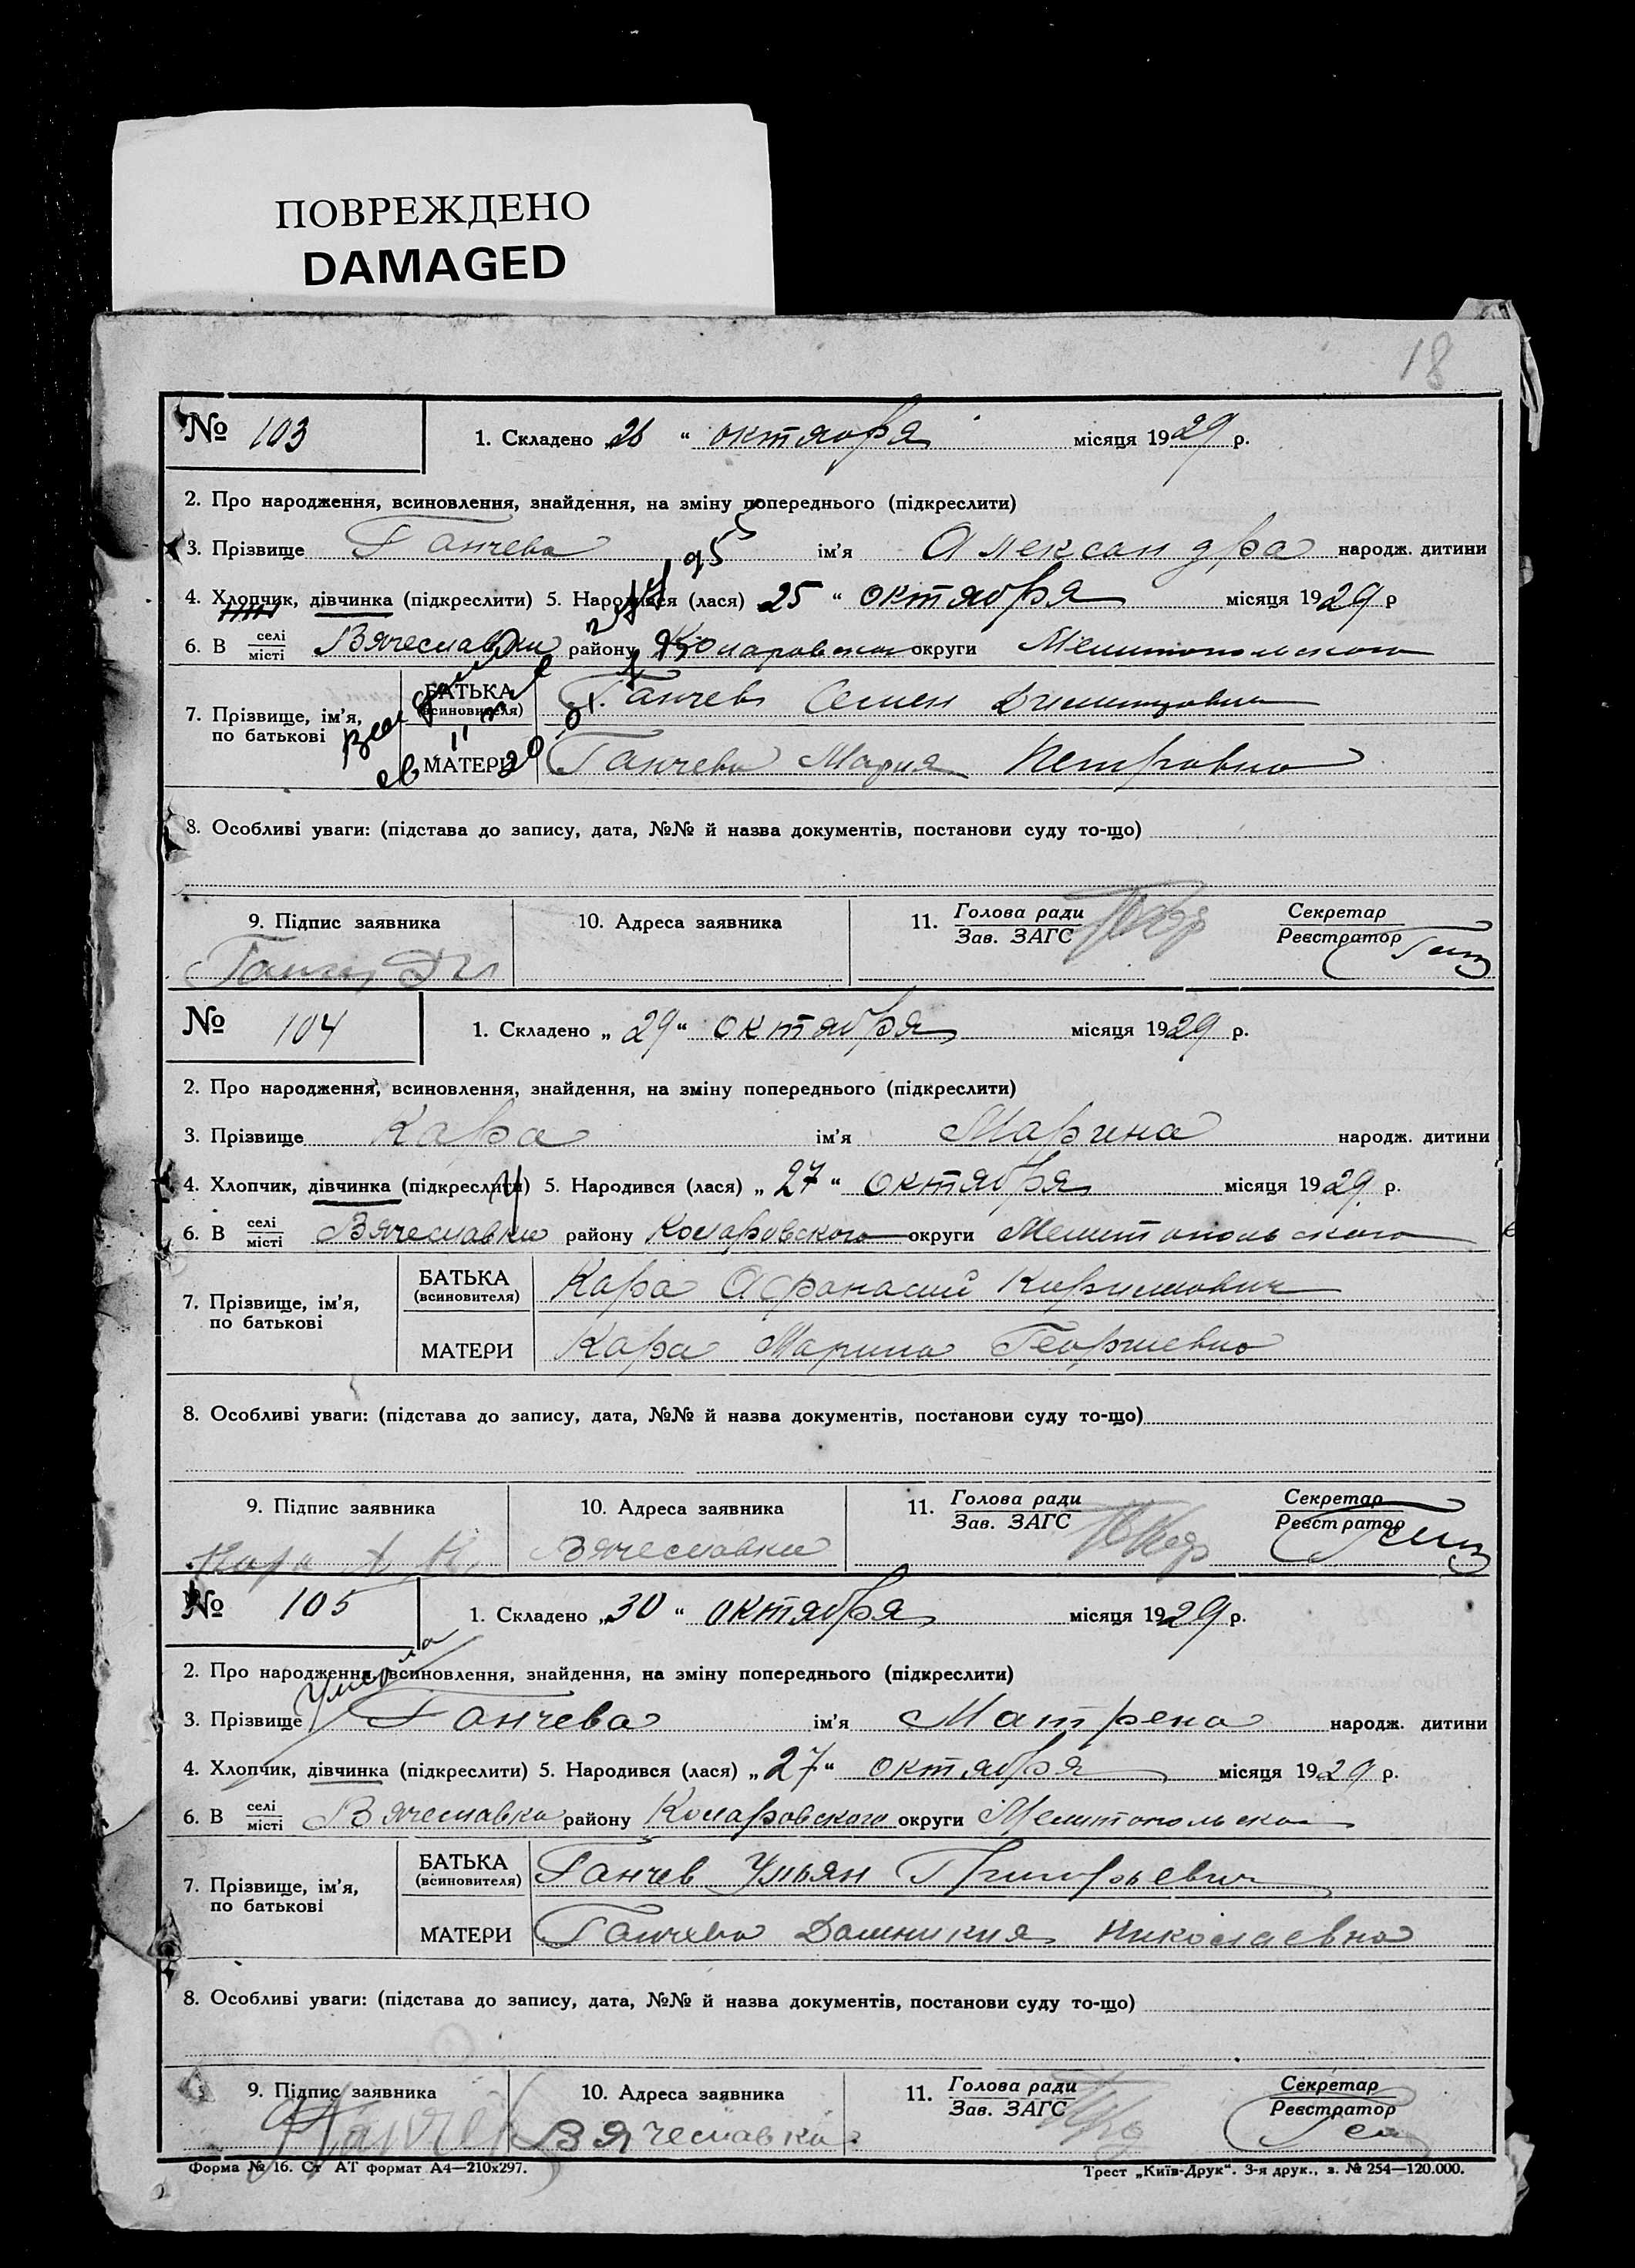 ПОВРЕЖДЕНО
DAMAGED
18
№ 103
1. Складено „26“ октября місяця 1929 р.
2. Про народження, всиновлення, знайдення, на зміну попереднього (підкреслити)
3. Прізвище Ганчева ім'я Александра народж. дитини
4. Хлопчик, дівчинка (підкреслити) 5. Народився (лася) 25 “ октября місяця 1929 р
6. В селі/місті Вячеславки району Комаровского округи Мелитопольского
7. Прізвище, ім'я, по батькові
БАТЬКА (всиновителя) Ганчев Семен Димитрович
МАТЕРИ Ганчева Мария Петровна
8. Особливі уваги: (підстава до запису, дата, №№ й назва документів, постанови суду то-що)
9. Підпис заявника 10. Адреса заявника 11. Голова ради/Зав. ЗАГС Секретар/Реєстратор
№ 104
1. Складено „29“ октября місяця 1929 р.
2. Про народження, всиновлення, знайдення, на зміну попереднього (підкреслити)
3. Прізвище Кара ім'я Марина народж. дитини
4. Хлопчик, дівчинка (підкреслити) 5. Народився (лася) „27“ октября місяця 1929 р.
6. В селі/місті Вячеславки району Комаровского округи Мелитопольского
7. Прізвище, ім'я, по батькові
БАТЬКА (всиновителя) Кара Афанасий Кириллович
МАТЕРИ Кара Марина Георгиевна
8. Особливі уваги: (підстава до запису, дата, №№ й назва документів, постанови суду то-що)
9. Підпис заявника 10. Адреса заявника 11. Голова ради/Зав. ЗАГС Секретар/Реєстратор
Кара А. К. Вячеславки
№ 105
1. Складено „30“ октября місяця 1929 р.
2. Про народження, всиновлення, знайдення, на зміну попереднього (підкреслити)
Умерла
3. Прізвище Ганчева ім'я Матрена народж. дитини
4. Хлопчик, дівчинка (підкреслити) 5. Народився (лася) „27“ октября місяця 1929 р.
6. В селі/місті Вячеславка району Комаровского округи Мелитопольско
7. Прізвище, ім'я, по батькові
БАТЬКА (всиновителя) Ганчев Ульян Григорьевич
МАТЕРИ Ганчева Домникия Николаевна
8. Особливі уваги: (підстава до запису, дата, №№ й назва документів, постанови суду то-що)
9. Підпис заявника 10. Адреса заявника 11. Голова ради/Зав. ЗАГС Секретар/Реєстратор
Ганчев Вячеславка
Форма № 16. Ст АТ формат А4—210х297. Трест „Київ-Друк“. 3-я друк., з. № 254—120.000.